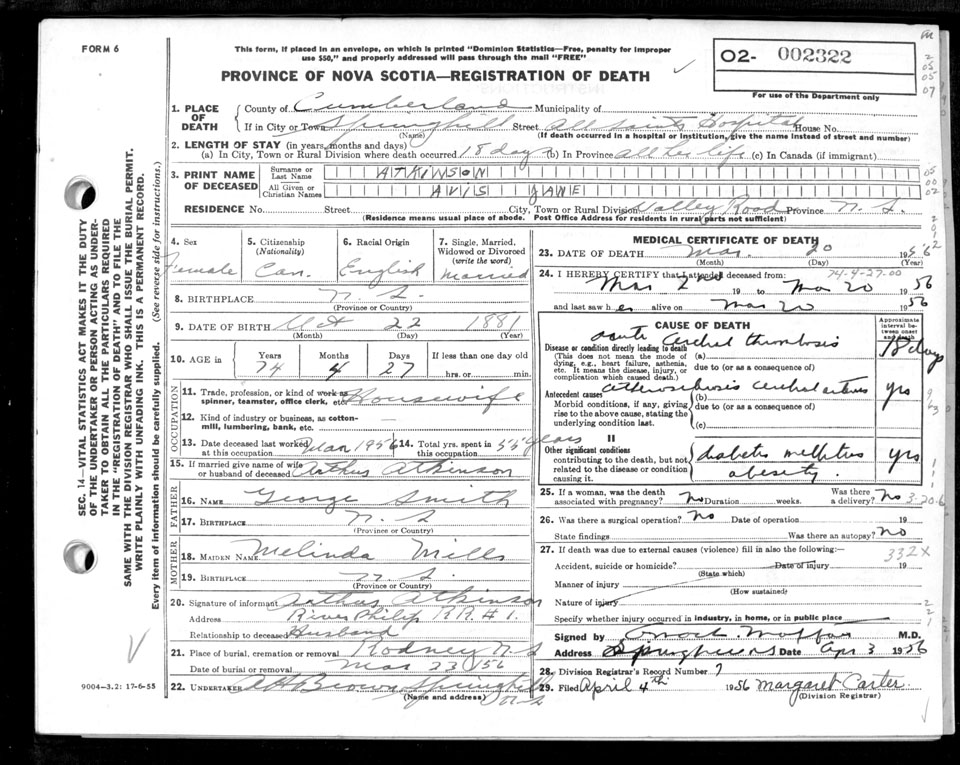 FORM 6
This form, if placed in an envelope, on which is printed "Dominion Statistics—Free, penalty for improper
use $50," and properly addressed will pass through the mail "FREE"
PROVINCE OF NOVA SCOTIA—REGISTRATION OF DEATH
02- 002322
For use of the Department only
SEC. 14—VITAL STATISTICS ACT MAKES IT THE DUTY
OF THE UNDERTAKER OR PERSON ACTING AS UNDER-
TAKER TO OBTAIN ALL THE PARTICULARS REQUIRED
IN THE "REGISTRATION OF DEATH" AND TO FILE THE
SAME WITH THE DIVISION REGISTRAR WHO SHALL ISSUE THE BURIAL PERMIT.
WRITE PLAINLY WITH UNFADING INK. THIS IS A PERMANENT RECORD.
Every item of information should be carefully supplied. (See reverse side for instructions.)
1. PLACE OF DEATH County of Cumberland Municipality of
If in City or Town Springhill Street All Saints Hospital House No.
(Name) (If death occurred in a hospital or institution, give the name instead of street and number)
2. LENGTH OF STAY (in years, months and days)
(a) In City, Town or Rural Division where death occurred 18 days (b) In Province all her life (c) In Canada (if immigrant)
3. PRINT NAME OF DECEASED Surname or Last Name ATKINSON
All Given or Christian Names AVIS JANE
RESIDENCE No. Street City, Town or Rural Division Valley Road Province N.S.
(Residence means usual place of abode. Post Office Address for residents in rural parts not sufficient)
4. Sex Female
5. Citizenship (Nationality) Can.
6. Racial Origin English
7. Single, Married, Widowed or Divorced (write the word) Married
8. BIRTHPLACE N.S.
(Province or Country)
9. DATE OF BIRTH Oct 22 1881
(Month) (Day) (Year)
10. AGE in Years 74 Months 4 Days 27 If less than one day old hrs. or min.
OCCUPATION
11. Trade, profession, or kind of work as spinner, teamster, office clerk, etc. Housewife
12. Kind of industry or business, as cotton-mill, lumbering, bank, etc. —
13. Date deceased last worked at this occupation Mar 1956 14. Total yrs. spent in this occupation 55 years
15. If married give name of wife or husband of deceased Atkinson
FATHER
16. NAME George Smith
17. BIRTHPLACE N.S.
(Province or Country)
MOTHER
18. MAIDEN NAME Melinda Mills
19. BIRTHPLACE N.S.
(Province or Country)
20. Signature of informant Atkinson
Address River Philip RR#1.
Relationship to deceased Husband
21. Place of burial, cremation or removal Rodney N.S
Date of burial or removal Mar 23 1956
22. UNDERTAKER Brown Springhill N.S
(Name and address)
9004—3.2: 17-6-55
MEDICAL CERTIFICATE OF DEATH
23. DATE OF DEATH Mar. 20 1956
(Month) (Day) (Year)
74-4-27-00
24. I HEREBY CERTIFY that I attended deceased from:
Mar 2nd 19 to Mar 20 1956
and last saw her alive on Mar 20 1956
CAUSE OF DEATH
Approximate interval between onset and death
I
Disease or condition directly leading to death (a) acute cerebral thrombosis 18 days
(This does not mean the mode of dying, e.g., heart failure, asthenia, etc. It means the disease, injury, or complication which caused death.)
due to (or as a consequence of)
Antecedent causes (b) cerebral arteries yrs
Morbid conditions, if any, giving rise to the above cause, stating the underlying condition last.
due to (or as a consequence of)
(c)
II
Other significant conditions contributing to the death, but not related to the disease or condition causing it.
diabetes mellitus yrs
obesity.
25. If a woman, was the death associated with pregnancy? No Duration weeks. Was there a delivery? No 3-20-6
26. Was there a surgical operation? No Date of operation 19
State findings Was there an autopsy? No
27. If death was due to external causes (violence) fill in also the following:— 332X
Accident, suicide or homicide? Date of injury 19
(State which)
Manner of injury
(How sustained)
Nature of injury
Specify whether injury occurred in industry, in home, or in public place
Signed by M.D.
Address Date Apr 3 1956
28. Division Registrar's Record Number 7
29. Filed April 4th 1956 Margaret Carter.
(Division Registrar)